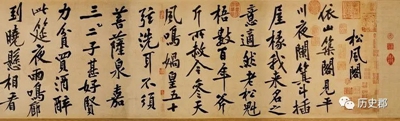 松風閣
依山築閣見平
川夜闌箕斗插
屋椽我來名之
意適然老松魁
梧數百年斧
斤所赦今參天
風鳴媧皇五十
弦洗耳不須
菩薩泉嘉
三二子甚好賢
力貧買酒醉
此筵夜雨鳴廊
到曉懸相看
历史郡